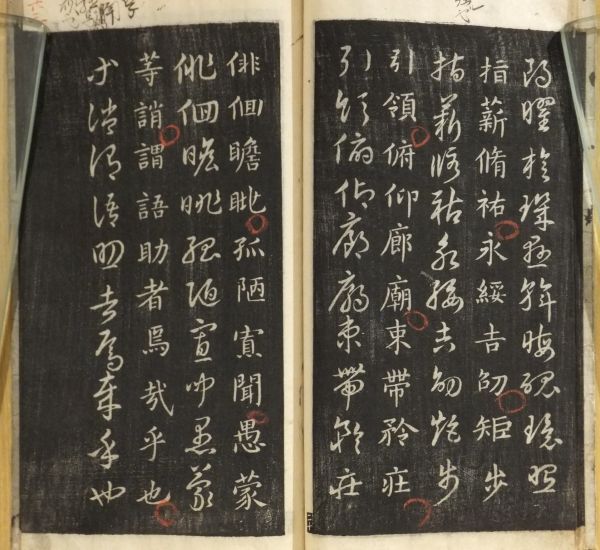 朗曜旋璣懸斡晦魄環照
指薪脩祐永綏吉劭矩步
指薪脩祐永綏吉劭矩步
引領俯仰廊廟束帶矜莊
引領俯仰廊廟束帶矜莊
俳佪瞻眺孤陋寡聞愚蒙
俳佪瞻眺孤陋寡聞愚蒙
等誚謂語助者焉哉乎也
等誚謂語助者焉哉乎也